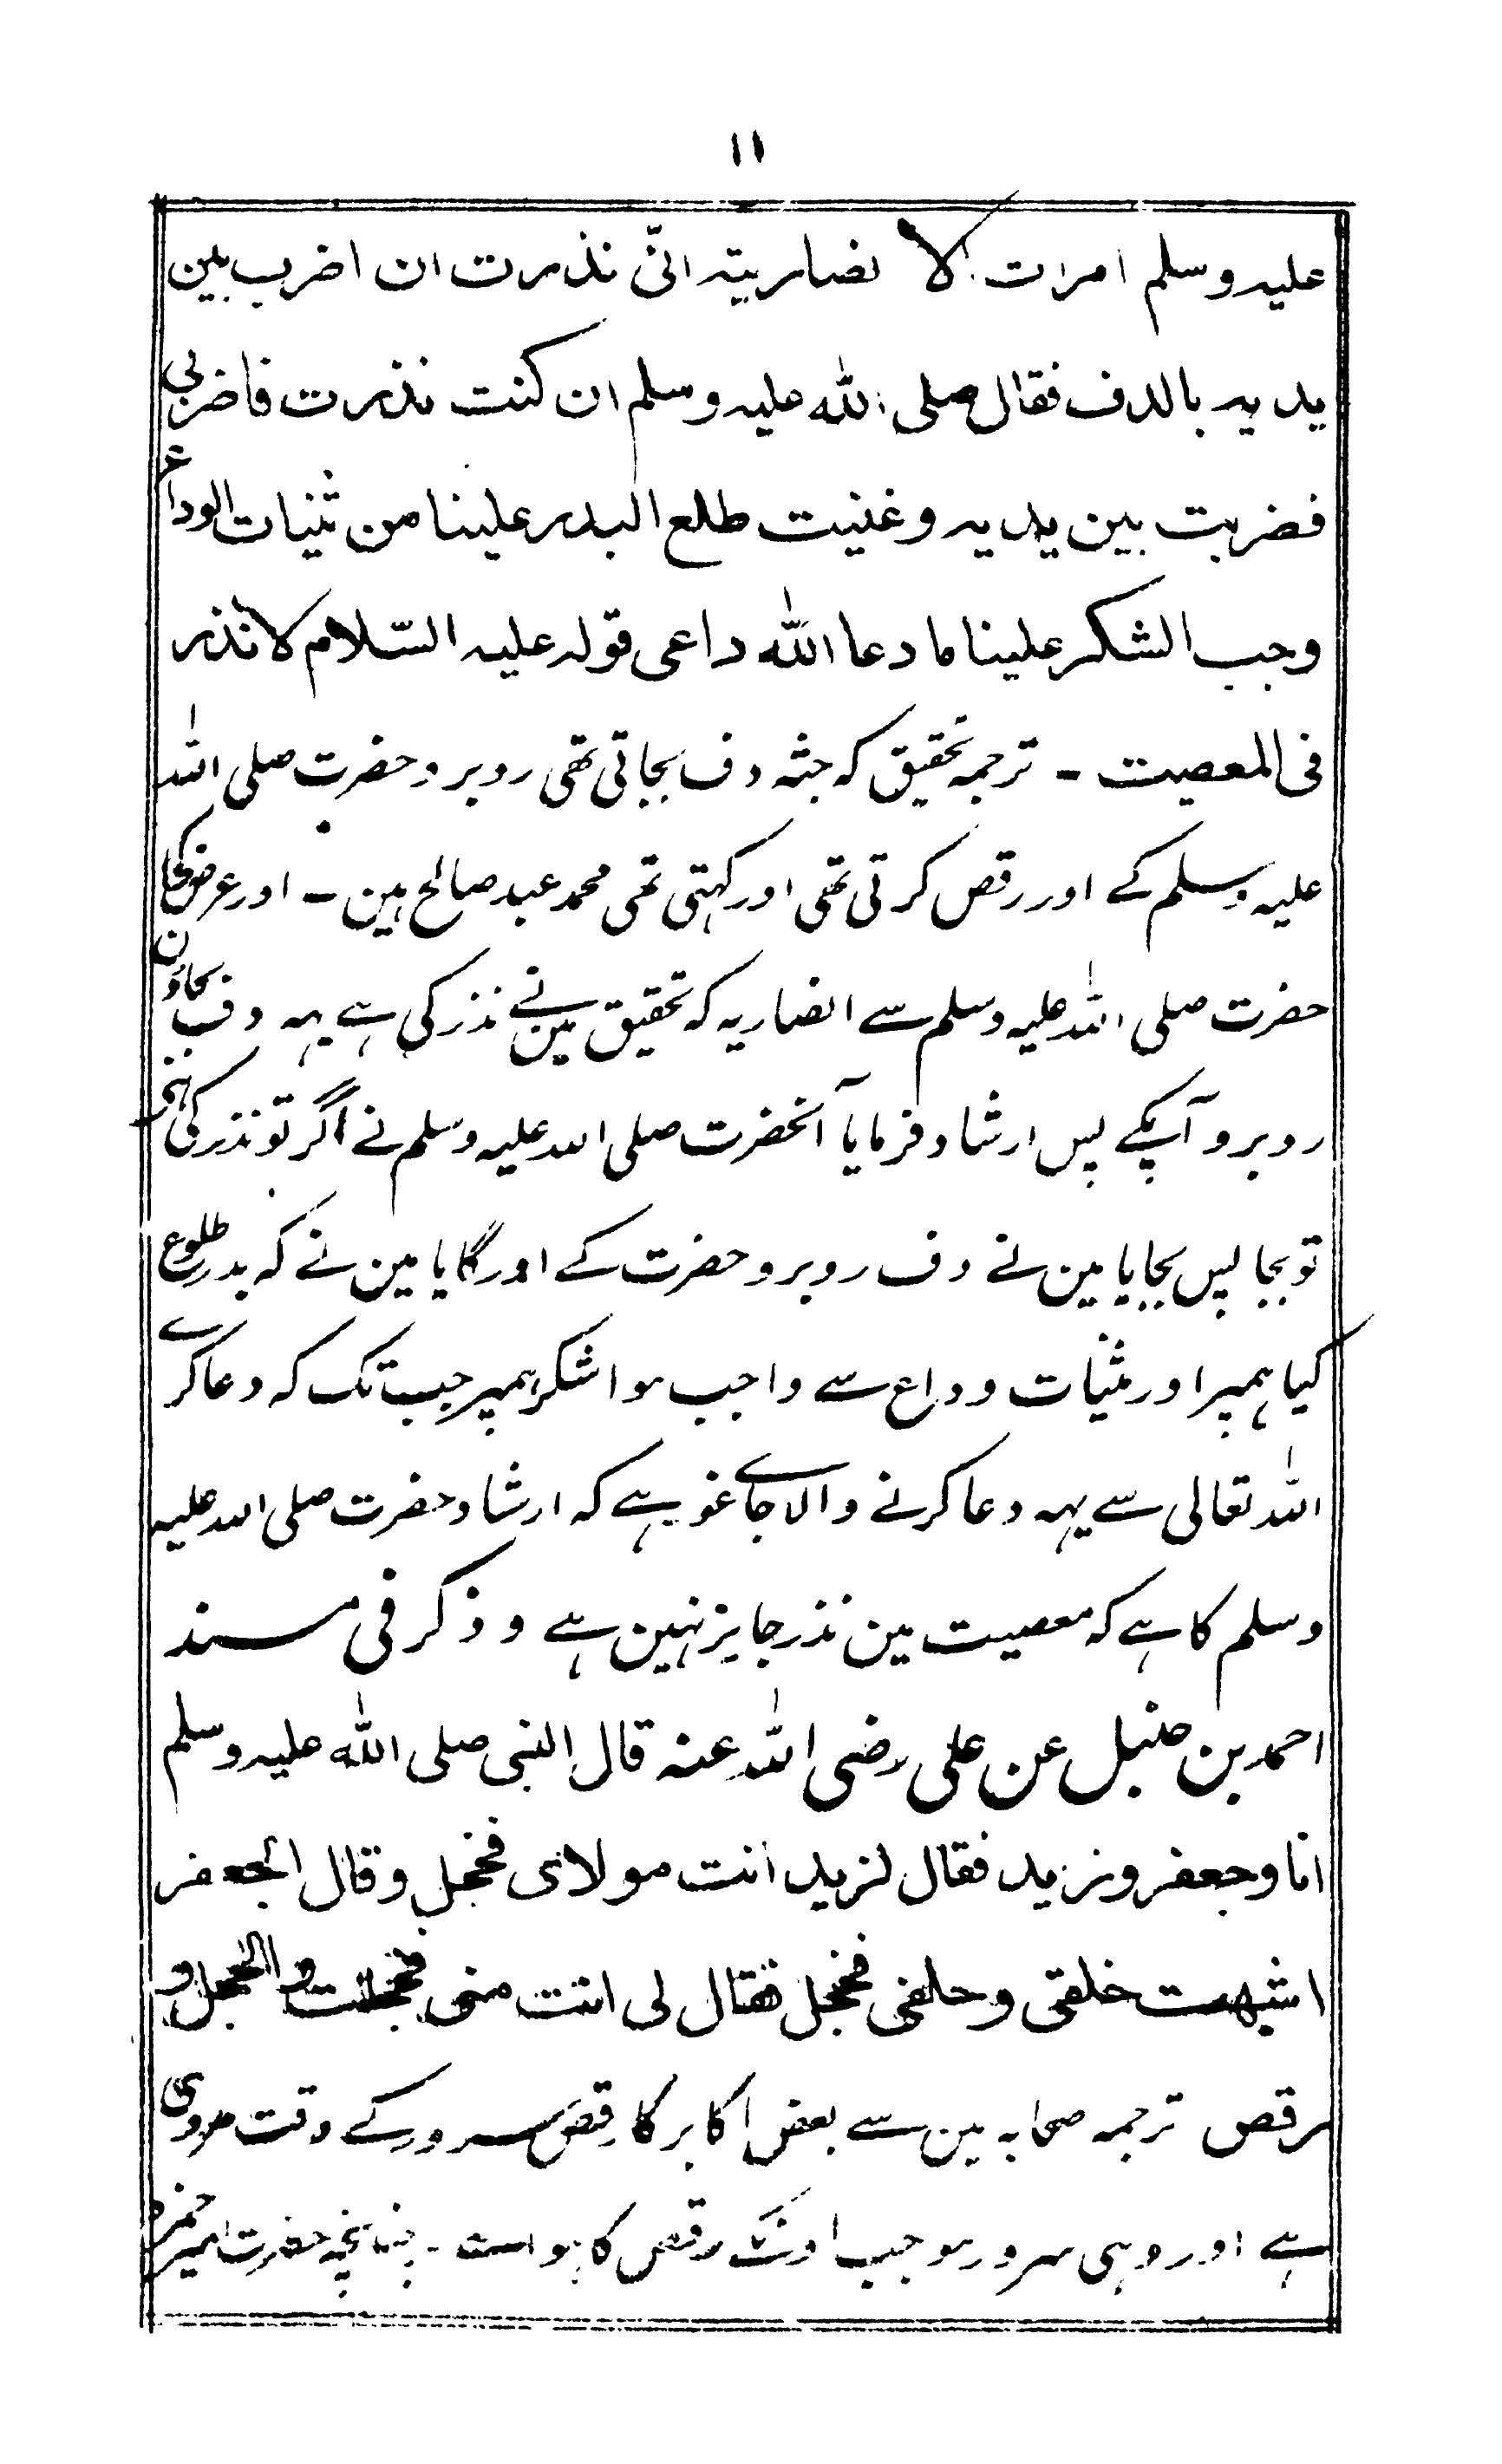 ۱۱
علیہ وسلم امرات الا نصاریۃ انّی نذرت ان اضرب بین
یدیہ بالدف فقال صلی اللہ علیہ وسلم ان کنت نذرت فاضربی
فضربت بین یدیہ وغنیت طلع البدر علینا من ثنیات الوداع
وجب الشکر علینا ما دعا اللہ داعی قولہ علیہ السّلام لا نذر
فی المعصیت ـ ترجمہ تحقیق کہ جثہ دف بجاتی تھی روبرو حضرت صلی اللہ
علیہ وسلم کے اور رقص کرتی تھی اور کہتی تھی محمد عبد صالح ہین ـ اور عرض کیا
حضرت صلی اللہ علیہ وسلم سے انصاریہ کہ تحقیق مین نے نذر کی ہے یہہ دف بجاؤن
روبرو آپکے پس ارشاد فرمایا آنحضرت صلی اللہ علیہ وسلم نے اگر تو نذر کی ہے
تو بجا پس بجایا مین نے دف روبرو حضرت کے اور گایا مین نے کہ بدر طلوع
کیا ہمپر اور ثنیات وداع سے واجب ہوا شکر ہمپر جب تک کہ دعا کرے
اللہ تعالی سے یہہ دعا کرنے والا جاے غور ہے کہ ارشاد حضرت صلی اللہ علیہ
وسلم کا ہے کہ معصیت مین نذر جایز نہین ہے و ذکر فی مسند
احمد بن حنبل عن علی رضی اللہ عنہ قال النبی صلی اللہ علیہ وسلم
انا وجعفر وزید فقال لزید انت مولای فخجل وقال الجعفر
اشبھت خلقی وخلقی فخجل فقال لی انت منی فخجلت والخجل و
رقص ترجمہ صحابہ مین سے بعض اکابر کا رقص سرور کے وقت مروی
ہے اور وہی سرور موجب اونکے رقص کا ہوا ـ چنانچہ حضرت امیر حمزہ